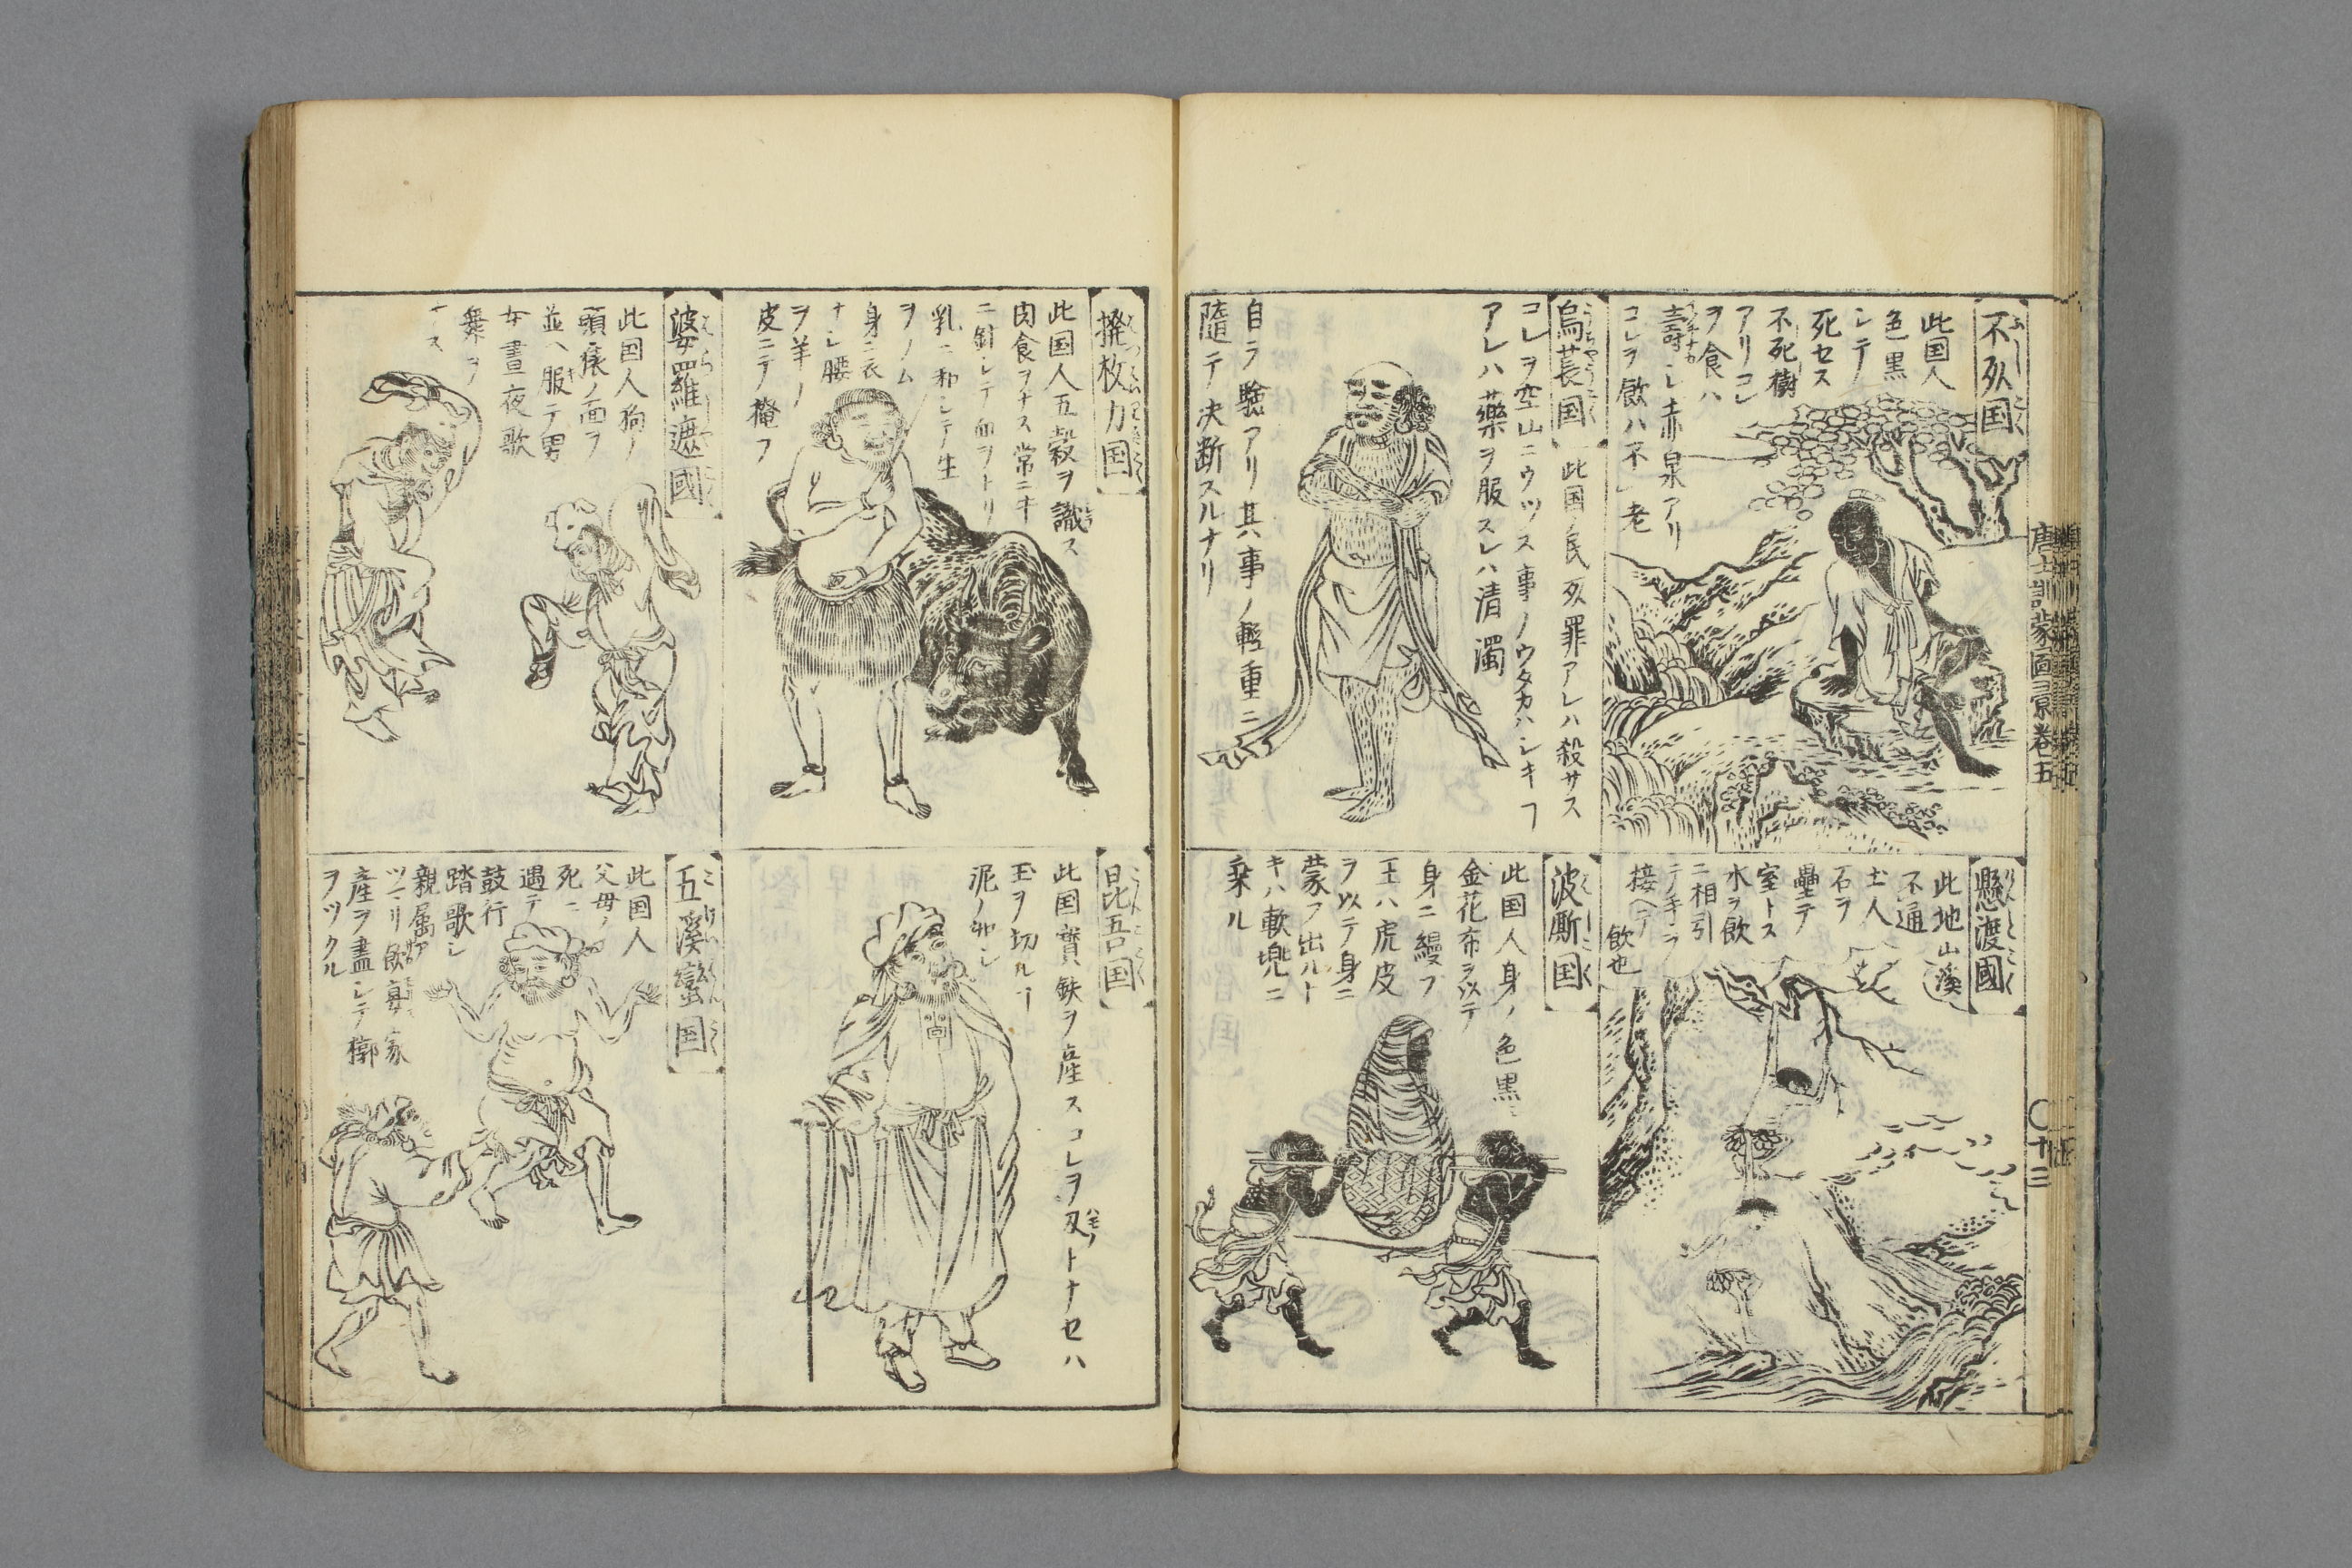 不死国
此国人
色黒
シテ
死セス
不死樹
アリコレ
ヲ食ハ
壽シ赤泉アリ
コレヲ飲ハ不老
烏萇国
此国ノ民死罪アレハ殺サス
コレヲ空山ニウツス事ノウタカハシキフ
アレハ藥ヲ服スレハ清濁
自ラ驗アリ其事ノ輕重ニ
隨テ決断スルナリ
懸渡國
此地山溪
不通
土人
石ヲ
壘テ
室トス
水ヲ飲
ニ相引
テ手ヲ
接ヘテ
飲也
波厮国
此国人身ノ色黒シ
金花布ヲ以テ
身ニ縵フ
王ハ虎皮
ヲ以テ身ニ
蒙フ出ルト
キハ軟兜ニ
乗ル
唐土訓蒙圖彙卷五
〇十三
撥枚力国
此国人五穀ヲ識ス
肉食ヲナス常ニ牛
ニ針シテ血ヲトリ
乳ニ和シテ生
ヲノム
身ニ衣
ナシ腰
ヲ羊ノ
皮ニテ掩フ
婆羅遮國
此国人狗ノ
頭猿ノ面ヲ
並ヘ服テ男
女晝夜歌
舞ヲ
ナス
昆吾国
此国寳鉄ヲ産スコレヲ刄トナセハ
玉ヲ切ルヿ
泥ノ如シ
五溪蠻国
此国人
父母ノ
死ニ
遇テ
鼓行
踏歌シ
親属ア
ツマリ飲宴家
産ヲ盡シテ槨
ヲツクル